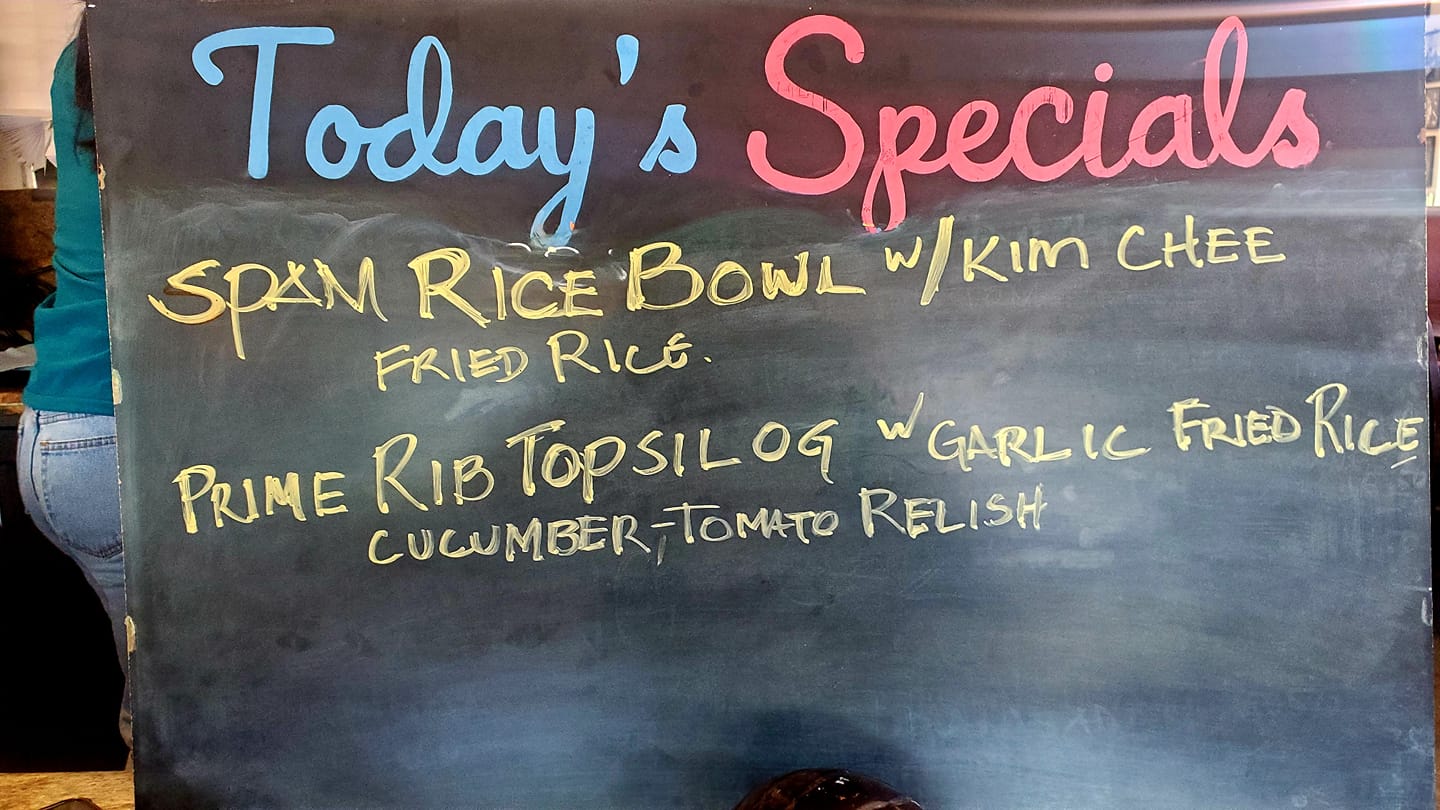 Today's Specials
SPAM RICE BOWL W/KIM CHEE
FRIED RICE.
PRIME RIB TOPSILOG W GARLIC FRIED RICE
CUCUMBER-TOMATO RELISH